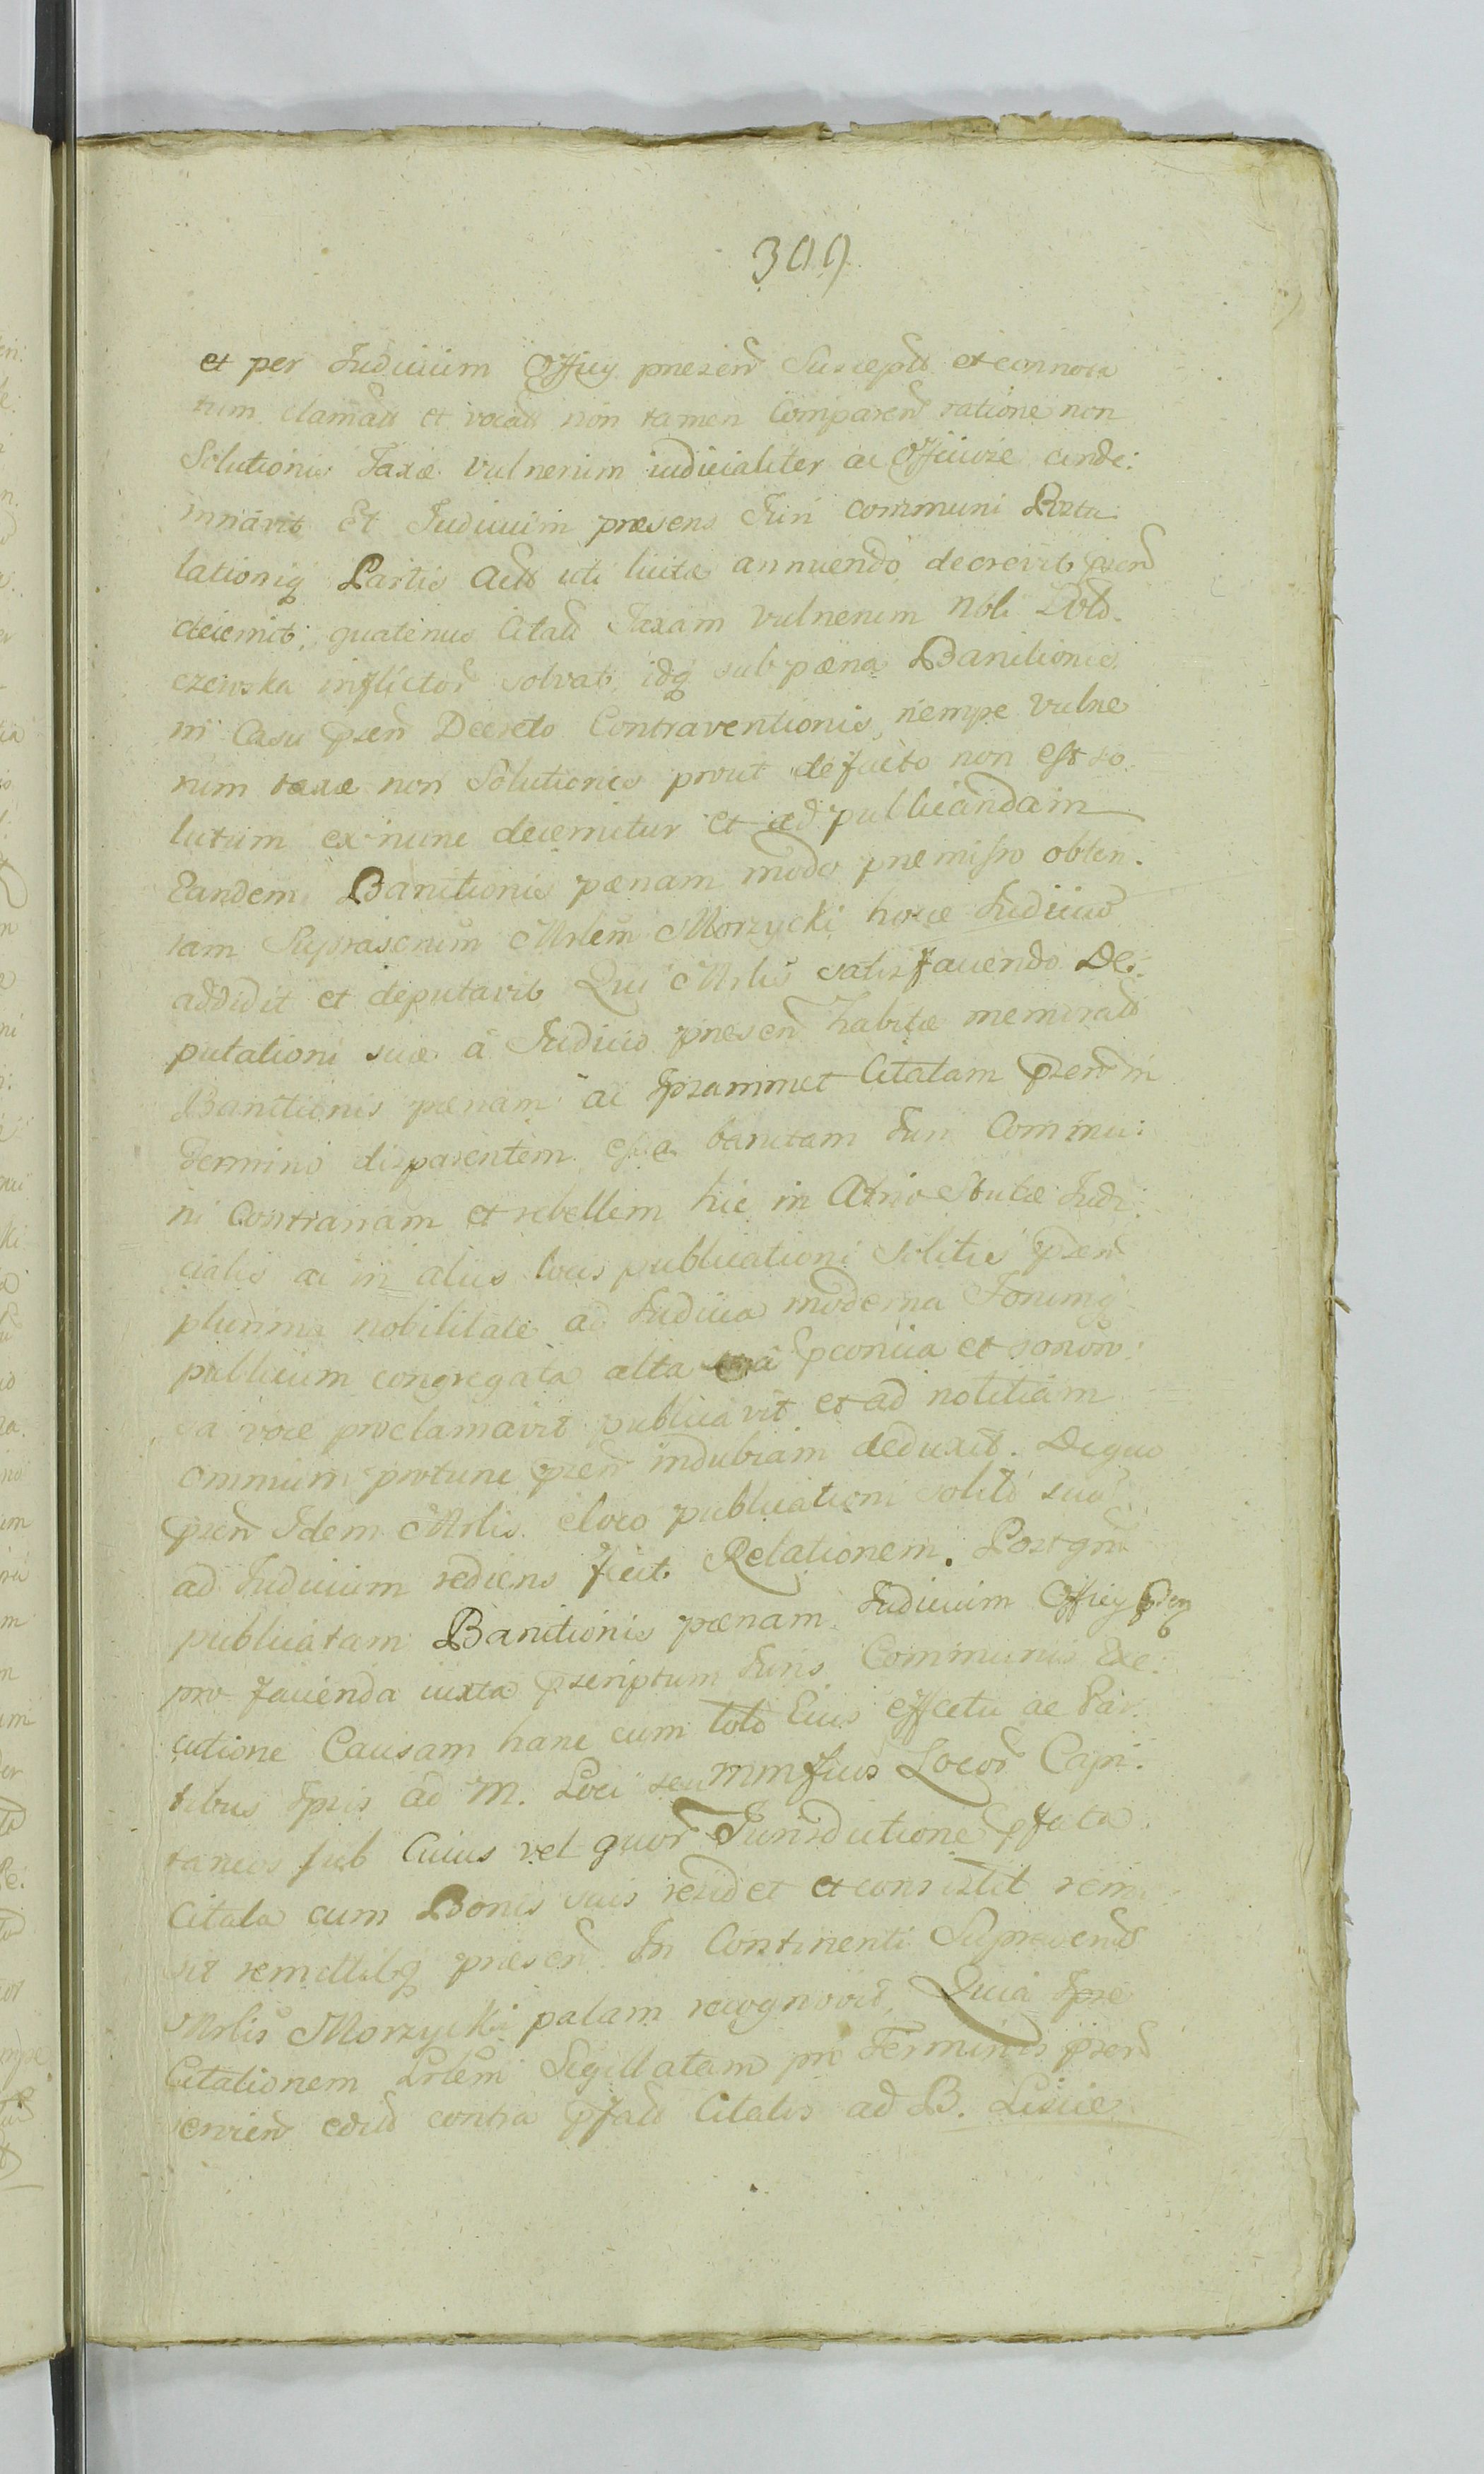 309
et per Judicium Officy præsen Suscept et connota
tum clamat et vocat non tamen Comparen ratione non
Solutionis Taxæ vulnerum iudicialiter ac Officiose conde:
mnavit Et Judicium præsens Juri communi Postu
lationiq Partis Act uti licitæ annuendo decrevit
decernit, quatenus Citat Taxam vulnerum Nbli
czewska inflictor solvat idq sub pæna Banitionis
in Casu præn Decreto Contraventionis, nempe vulne
rum taxæ non Solutionis prout defacto non est so
lutum ex nunc decernitur et ad publicandam
Eandem Banitionis pænam modo præmisso obten.
tam Suprascrium Mrlem Morzycki hocce Judicium
addidit et deputavit Qui Mrlis satisfaciendo De:
putationi suæ â Judicio præsen habitæ memorat
Banitionis pænam ac Ipsammet Citatam præn in
Termino disparentem esse banitam Juri Commu:
ni Contrariam et rebellem hic in Atrio Stubæ Judi:
cialis ac in aliis locis publicationi Solitis præn
plurima nobilitate ad Judicia moderna Forumq
publicum congregata alta pconiia et sonoro:
sa voce proclamavit publicavit et ad notitiam
omnium protunc præn indubiam deduxit. De quo
præn Idem Mrlis eloco publicationi solito suo
ad Judicium rediens fecit Relationem. Post qm
publicatam Banitionis pænam Judicium Officy præn
pro facienda iuxta pscriptum Juris Communis Exe:
cutione Causam hanc cum toto Eius effectu ac Par
tibus Ipsis ad M. Loci seu Mmficos Locor Capi:
taneos sub Cuius vel quor Jurisdictione pfata
Citata cum Bonis suis residet et consistit remi
sit remittitq præsen. In Continenti Suprascrit
Mrlis Morzycki palam recognovit, Quia Ipse
Citationem Lrlem Sigillatam pro Terminis præn
servien edit contra pfat Citatis ad B. Lisice